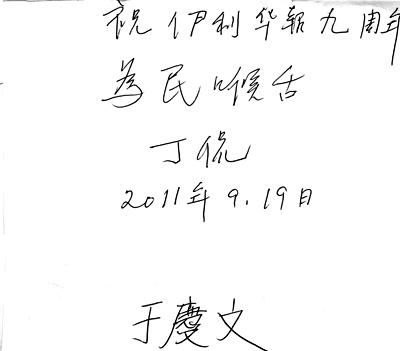 祝伊利华報九周年
為民喉舌
丁侃
2011年9.19日
于慶文